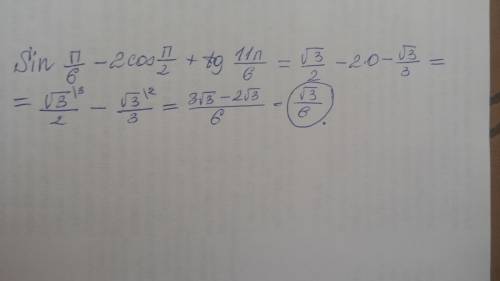 Sin π/6 − 2cos π/2 + tg 11π/6 = √3/2 − 2·0 − √3/3 =
= √3\3/2 − √3\2/3 = 3√3 − 2√3/6 = √3/6.